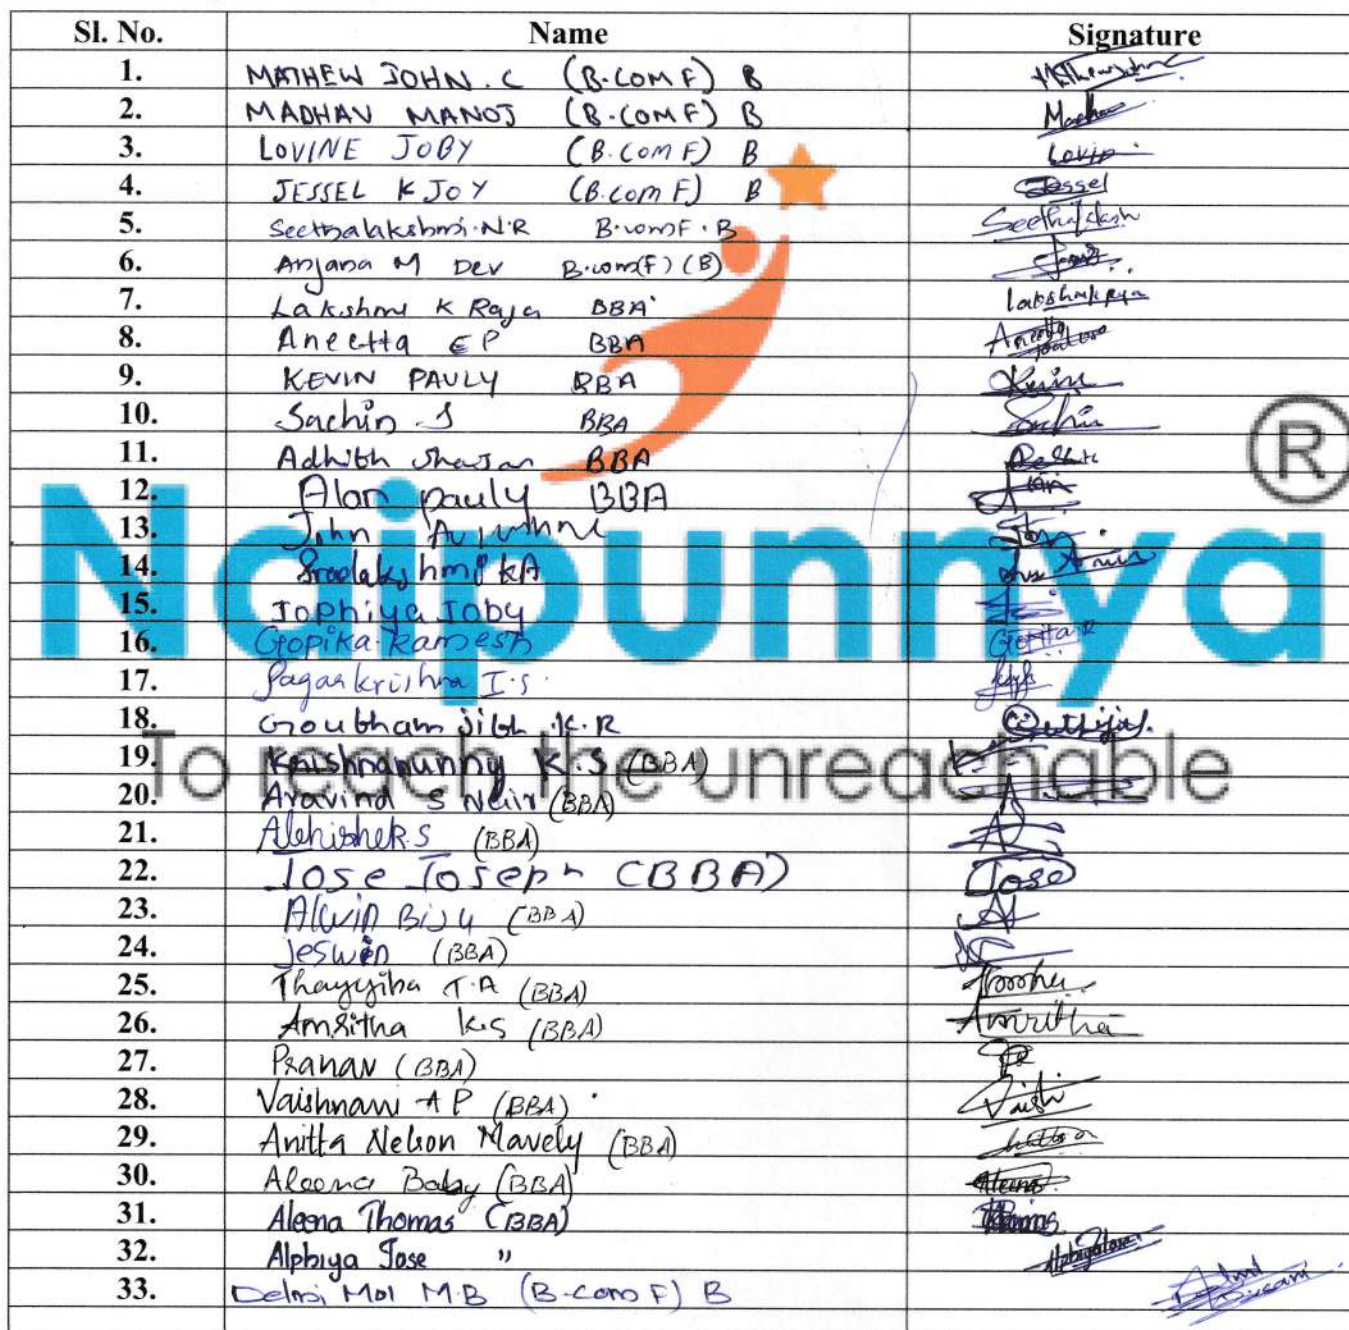 Sl. No. Name Signature
1. MATHEW JOHN . C (B.COM F) B
2. MADHAV MANOJ (B.COM F) B Madhav
3. LOVINE JOBY (B.COM F) B
4. JESSEL K JOY (B.com F) B Jessel
5. Seethalakshmi.N.R B.comF.B
6. Anjana M Dev B.com(F) (B)
7. Lakshmi K Raja BBA
8. Aneetta E P BBA
9. KEVIN PAULY BBA Kevin
10. Sachin S BBA Sachin
11. Adhith BBA
12. Alan pauly BBA
13. John
14. Sreelakshmi KA
15. Jophiya Joby
16. Gopika Ramesh
17. Sagar krishna I.S.
18. Goutham Jith .K.R
19. Krishnanunny K.S (BBA)
20. Aravind S Nair (BBA)
21. Abhishek.S (BBA)
22. Jose Joseph (BBA) Jose
23. Alwin Biju (BBA)
24. Jeswin (BBA)
25. Thayyiba T.A (BBA)
26. Amritha K.S (BBA) Amritha
27. Pranav (BBA)
28. Vaishnavi A P (BBA) Vaish
29. Anitta Nelson Mavely (BBA)
30. Aleena Baby (BBA) Aleena
31. Aleena Thomas (BBA)
32. Alphiya Jose " Alphiya Jose
33. Delmi Mol M.B (B-com F) B
Naipunnya ®
To reach the unreachable